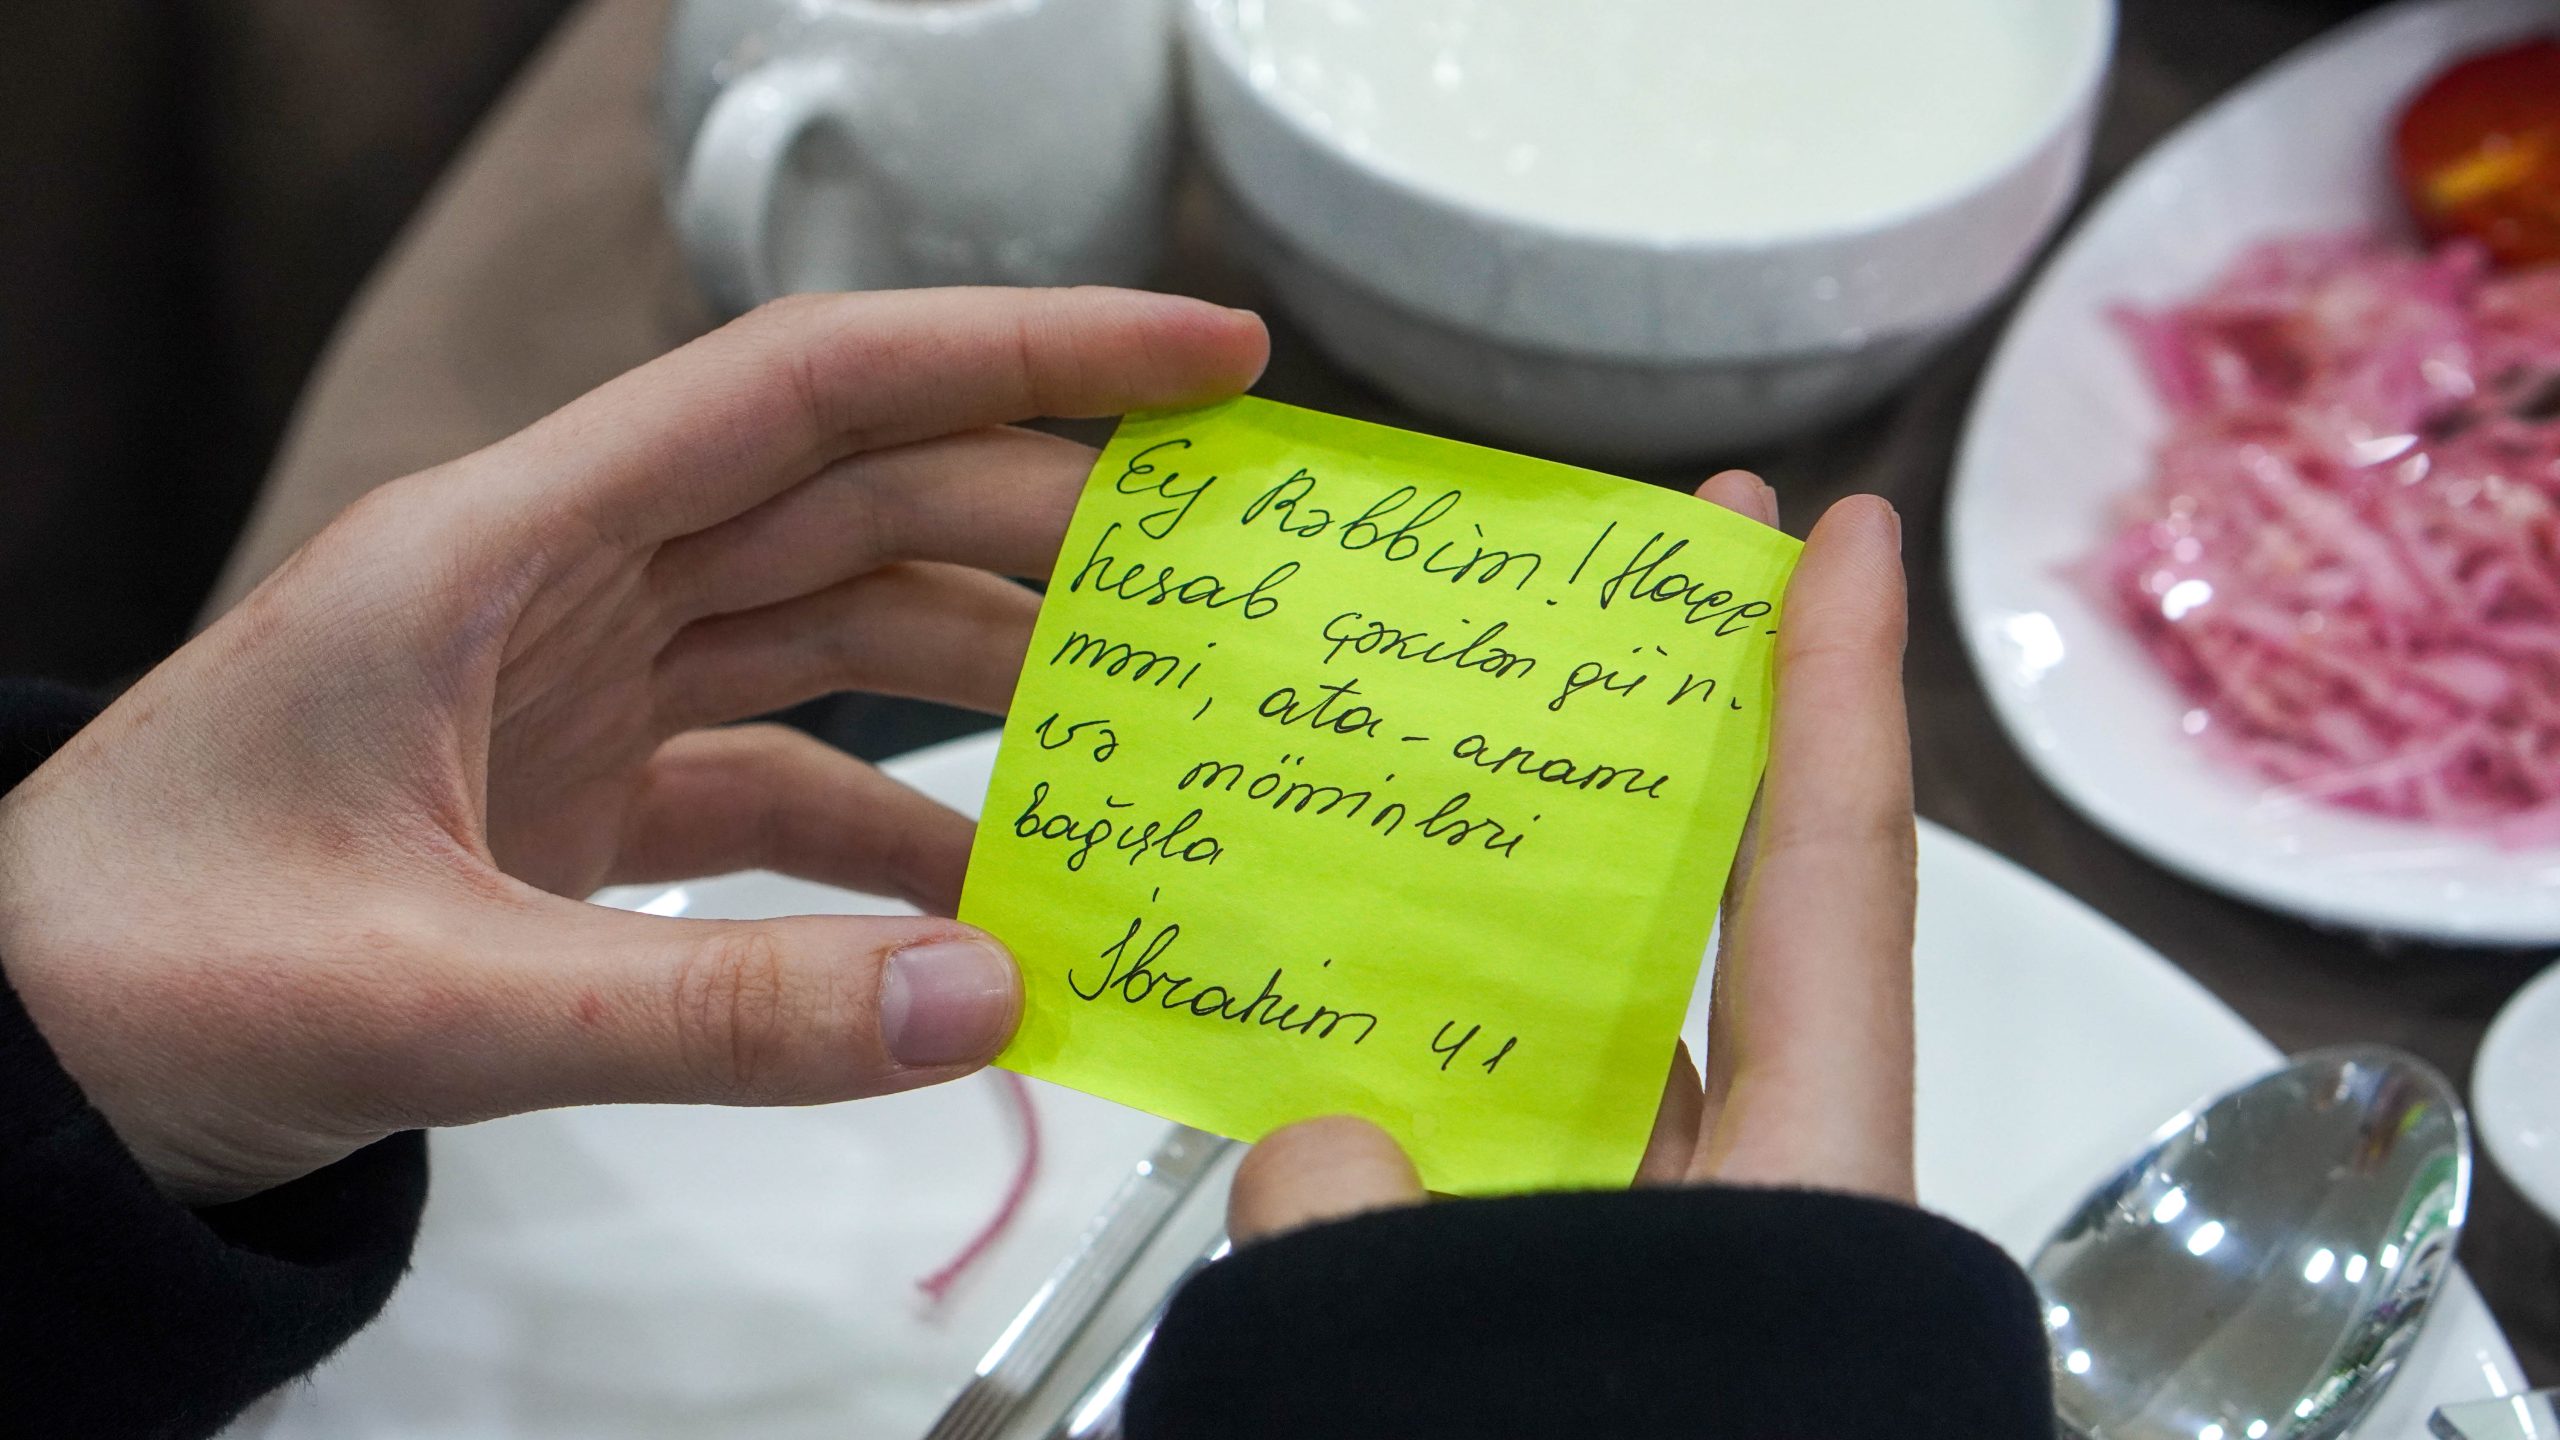 Ey Rəbbim! Haqq-
hesab çəkilən gün.
məni, ata-anamı
və möminləri
bağışla
İbrahim 41